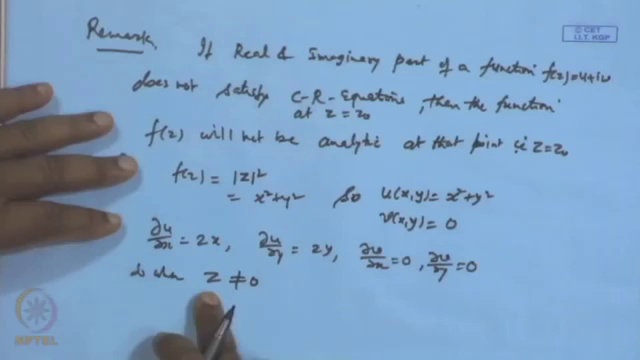 © CET
I.I.T. KGP
Remark If Real & Imaginary part of a function f(z)=u+iv
does not satisfy C-R-Equations, then the function
at z=z₀
f(z) will not be analytic at that point i.e z=z₀
f(z) = |z|²
= x²+y² So u(x,y) = x²+y²
v(x,y) = 0
∂u/∂x = 2x, ∂u/∂y = 2y, ∂v/∂x = 0, ∂v/∂y = 0
when z ≠ 0
NPTEL